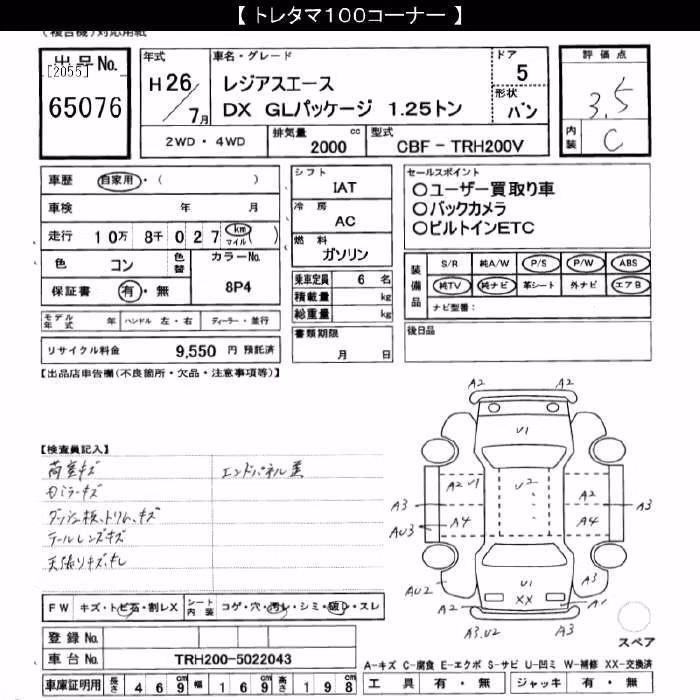 【 トレタマ100コーナー 】
(複合機)対応用紙
出品No.
[2055]
65076
年式
H26/7月
車名・グレード
レジアスエース
DX GLパッケージ 1.25トン
ドア
5
形状
バン
評価点
3.5
内装
C
2WD・4WD
排気量 2000 cc
型式 CBF－TRH200V
車歴 自家用・( )
車検 年 月
走行 10万 8千 027 km マイル( )
色 コン 色替
カラーNo.
8P4
保証書 有・無
モデル年式 年 ハンドル 左・右 ディーラー・並行
リサイクル料金 9,550 円 預託済
シフト
IAT
冷房
AC
燃料
ガソリン
乗車定員 6 名
積載量 kg
総重量 kg
書類期限
月 日
セールスポイント
○ユーザー買取り車
○バックカメラ
○ビルトインETC
装備品
S/R 純A/W P/S P/W ABS
純TV 純ナビ 革シート 外ナビ エアB
ナビ型番:
後日品
【出品店申告欄(不良箇所・欠品・注意事項等)】
【検査員記入】
荷室キズ
エンドパネル歪
Dミラーキズ
ダッシュ板、トリム、キズ
テールレンズキズ
天張りキズ、ヨレ
A2 A2
U1
A2 U1 U2 A2
A3 A3
AU3 A4 A4
AU2 U1 A3
XX A1
A2
A3.U2 A3
スペア
FW キズ・トビ石・割レX
シート内装 コゲ・穴・汚レ・シミ・破レ・スレ
登録No.
車台No. TRH200-5022043
車庫証明用 長さ 469 幅 169 高さ 198
A-キズ C-腐食 E-エクボ S-サビ U-凹ミ W-補修 XX-交換済
工具 有・無 ジャッキ 有・無